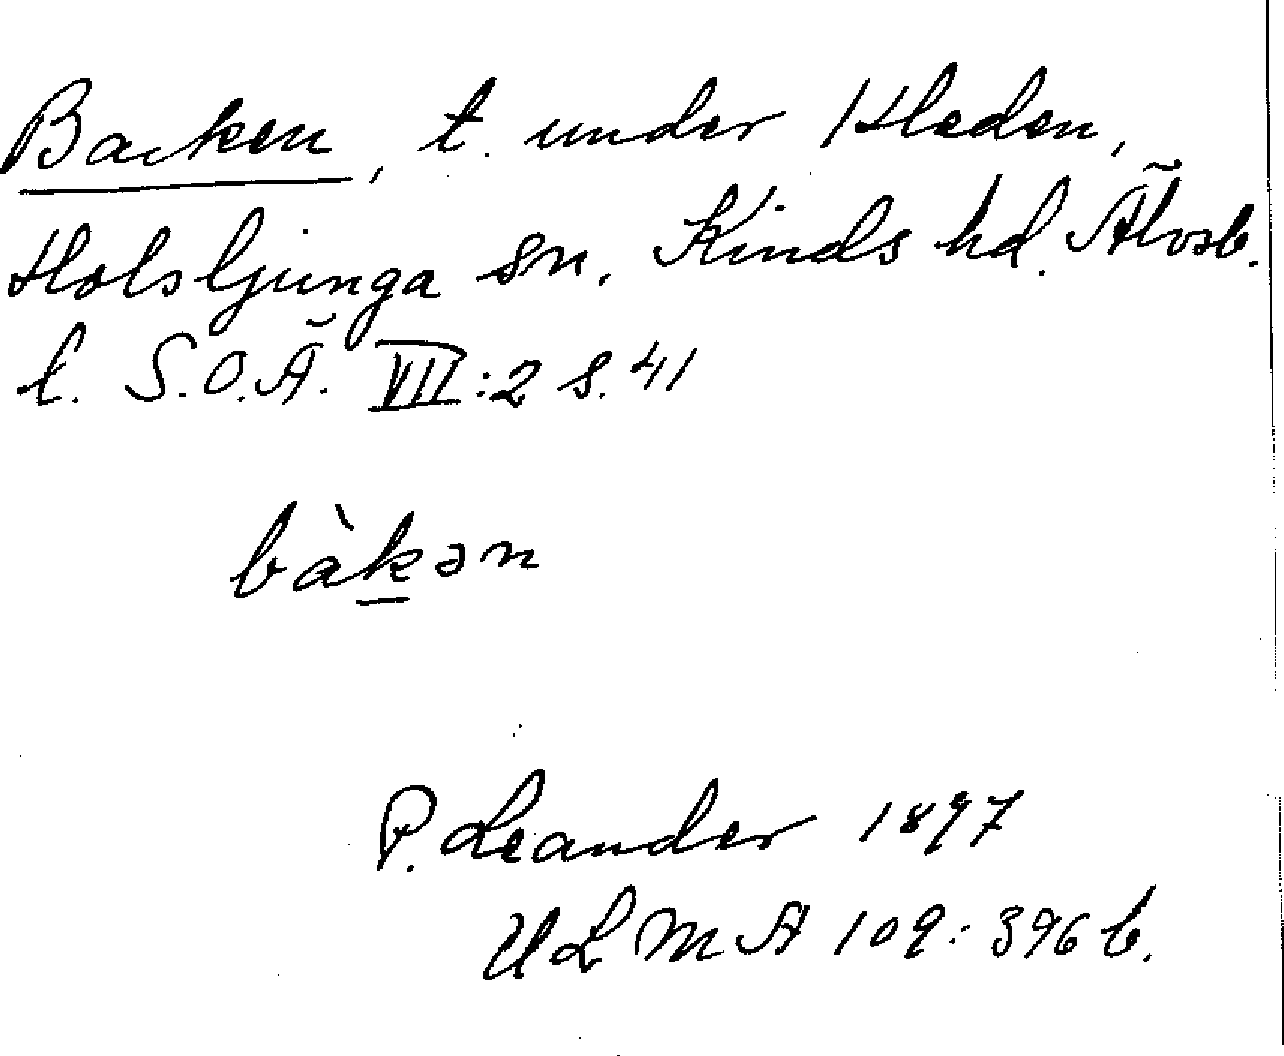 Backen, t. under Heden,
Holsljunga sn. Kinds hd. Älvsb.
l. S.O.Ä. VII:2 s. 41
bàk̲ən
P. Leander 1897
ULMA 109:396 b.